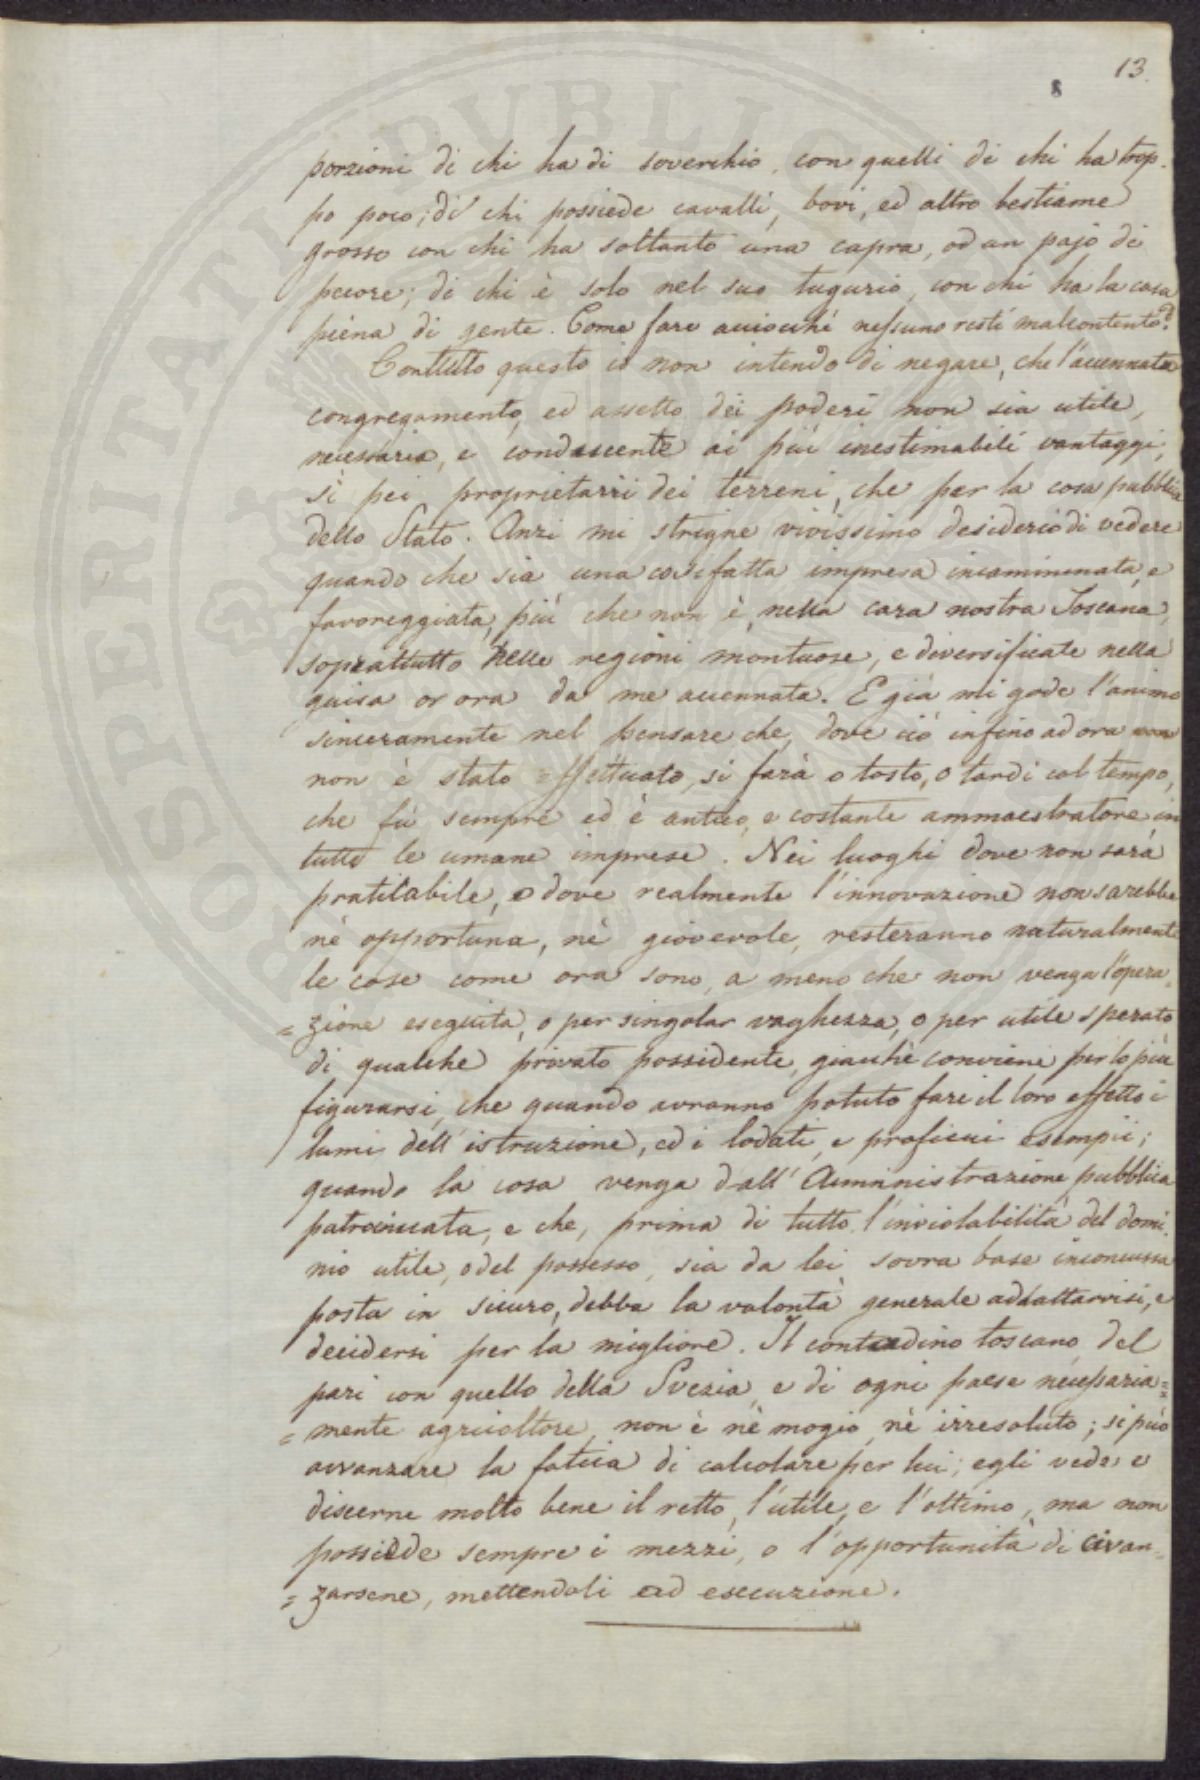 13.
8
porzioni di chi ha di soverchio, con quelli di chi ha trop-
po poco; di chi possiede cavalli, bovi, ed altro bestiame
grosso con chi ha soltanto una capra, od un pajo di
pecore; di chi è solo nel suo tugurio, con chi ha la casa
piena di gente. Come fare acciocchè nessuno resti malcontento?
Contutto questo io non intendo di negare, che l'accennata
congregamento, ed assetto dei poderi non sia utile,
necessaria, e conducente ai più inestimabili vantaggi,
sì pei proprietarri dei terreni, che per la cosa pubblica
dello Stato. Anzi mi strigne vivissimo desiderio di vedere
quando che sia una cosifatta impresa incamminata, e
favoreggiata, più che non è, nella cara nostra Toscana,
soprattutto nelle regioni montuose, e diversificate nella
guisa or ora da me accennata. E già mi gode l'animo
sinceramente nel pensare che, dove ciò infino ad ora
non è stato effettuato, si farà o tosto, o tardi col tempo,
che fù sempre ed è antico, e costante ammaestratore in
tutte le umane imprese. Nei luoghi dove non sarà
praticabile, o dove realmente l'innovazione non sarebbe
nè opportuna, nè giovevole, resteranno naturalmente
le cose come ora sono, a meno che non venga l'opera-
=zione eseguita, o per singolar vaghezza, o per utile sperato
di qualche privato possidente, giacchè conviene per lo più
figurarsi, che quando avranno potuto fare il loro effetto i
lumi dell'istruzione, ed i lodati, e proficui esempii;
quando la cosa venga dall'Amministrazione pubblica
patrocinata, e che, prima di tutto, l'inviolabilità del domi-
nio utile, o del possesso, sia da lei sovra base inconcussa
posta in sicuro, debba la volontà generale addattarvisi, e
decidersi per la migliore. Il contadino toscano, del
pari con quello della Svezia, e di ogni paese necessaria=
=mente agricoltore, non è nè mogio, nè irresoluto; si può
avvanzare la fatica di calcolare per lui; egli vede e
discerne molto bene il retto, l'utile, e l'ottimo, ma non
possiede sempre i mezzi, o l'opportunità di avvan-
=zarsene, mettendoli ad esecuzione.
PROSPERITATI PUBLICAE